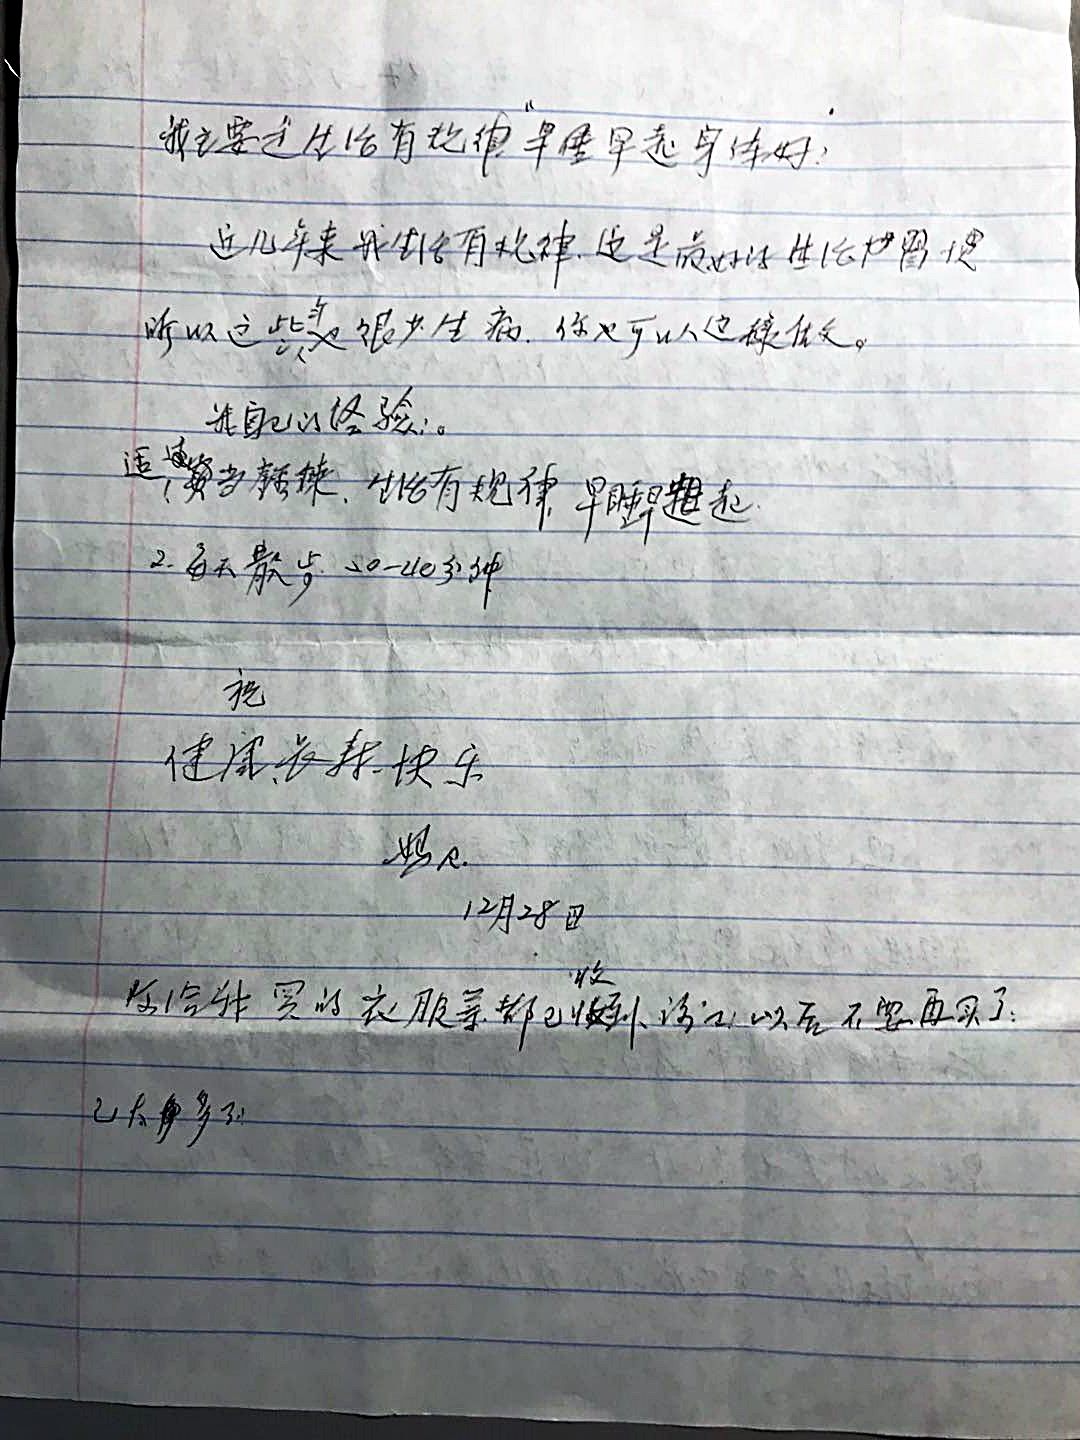 我主要是生活有规律"早睡早起身体好:
近几年来我生活有规律.这是最好的生活习惯
所以这些年 很少生病.你也可以这样做。
我自己的经验:。
适当锻炼.生活有规律,早睡早起.
2.每天散步.30-40分钟
祝
健康、美丽.快乐
妈
12月28日
你给我买的衣服等都已收到、谢谢以后不要再买了:
已太多了